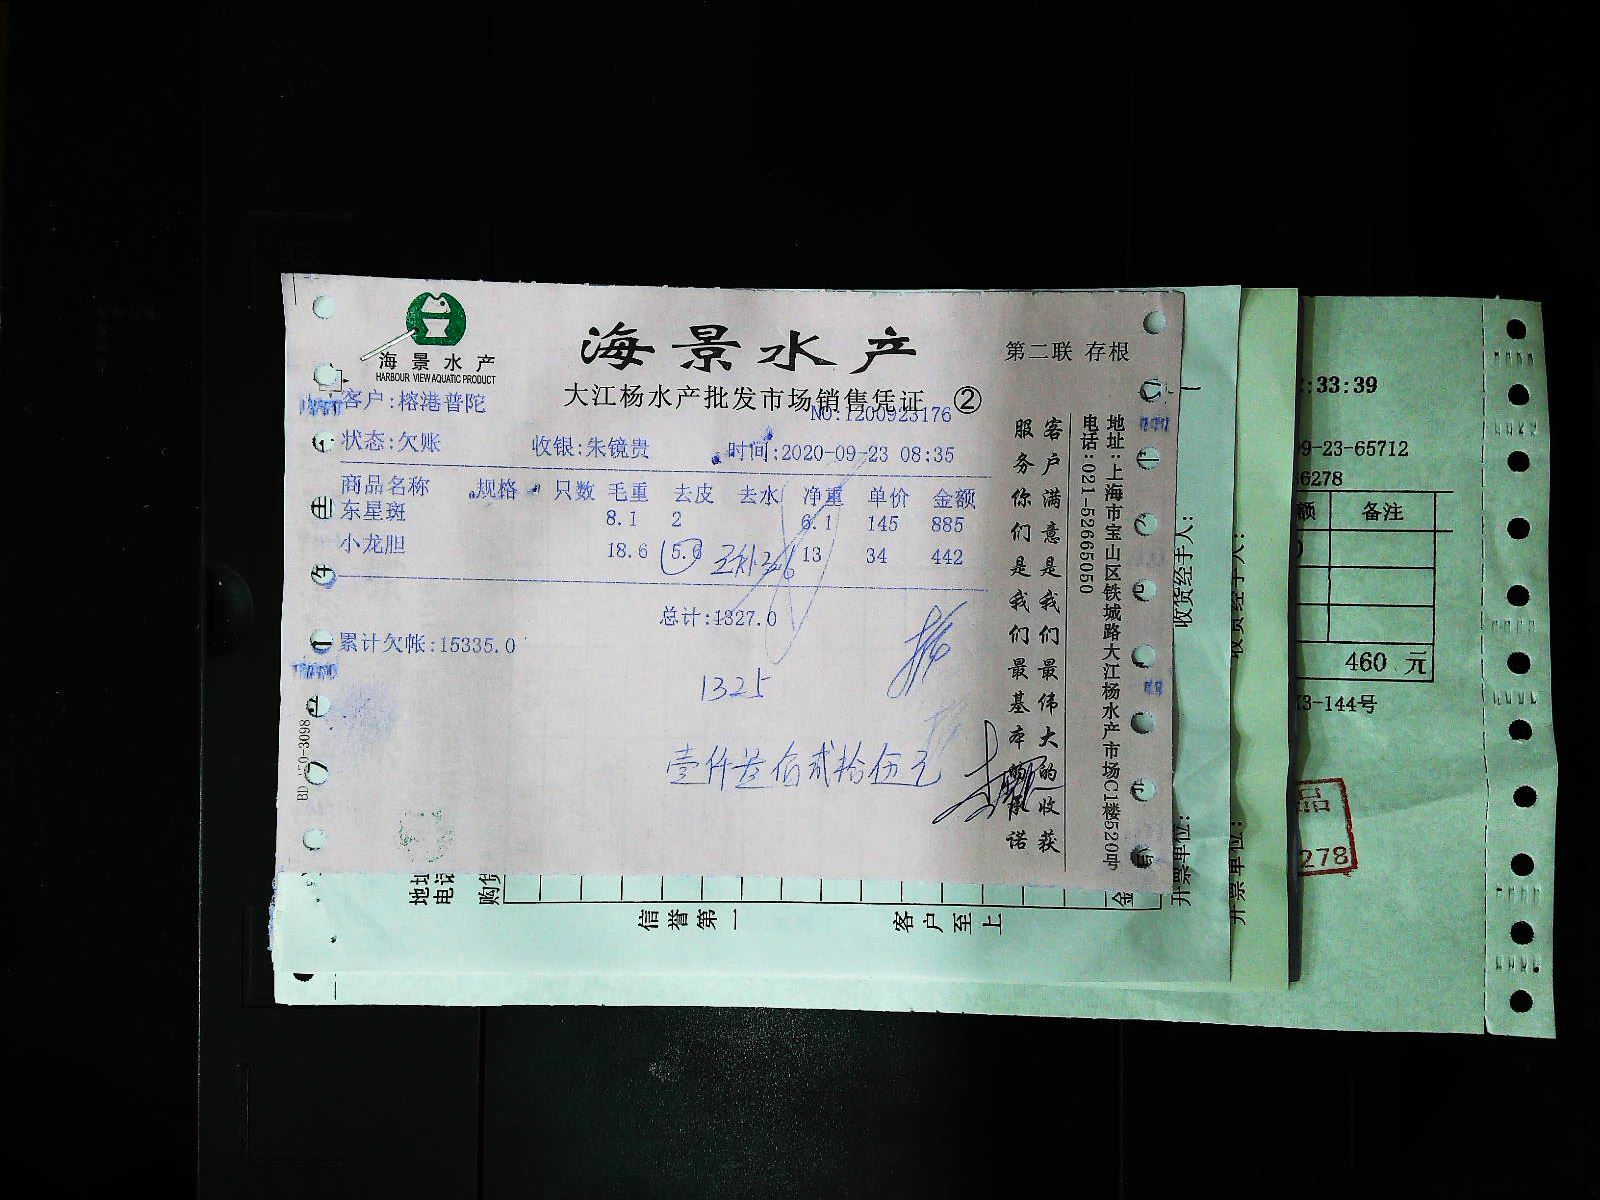 海景水产
HARBOUR VIEW AQUATIC PRODUCT
海景水产
第二联 存根
大江杨水产批发市场销售凭证 ②
NO:1200923176
客户:榕港普陀
状态:欠账 收银:朱镜贵 时间:2020-09-23 08:35
商品名称 规格 只数 毛重 去皮 去水 净重 单价 金额
东星斑 8.1 2 6.1 145 885
小龙胆 18.6 5.6 13 34 442
总计:1327.0
累计欠帐:15335.0
1325
壹仟叁佰贰拾伍元
客户满意是我们最伟大的收获
服务你们是我们最基本的承诺
地址:上海市宝山区铁城路大江杨水产市场C1楼520号
电话:021-52665050
:33:39
09-23-65712
6278
额 备注
460 元
3-144号
278
收货经手人:
收货经手人:
开票单位:
开票单位:
地址
电话
购货
金
信誉第一
客户至上